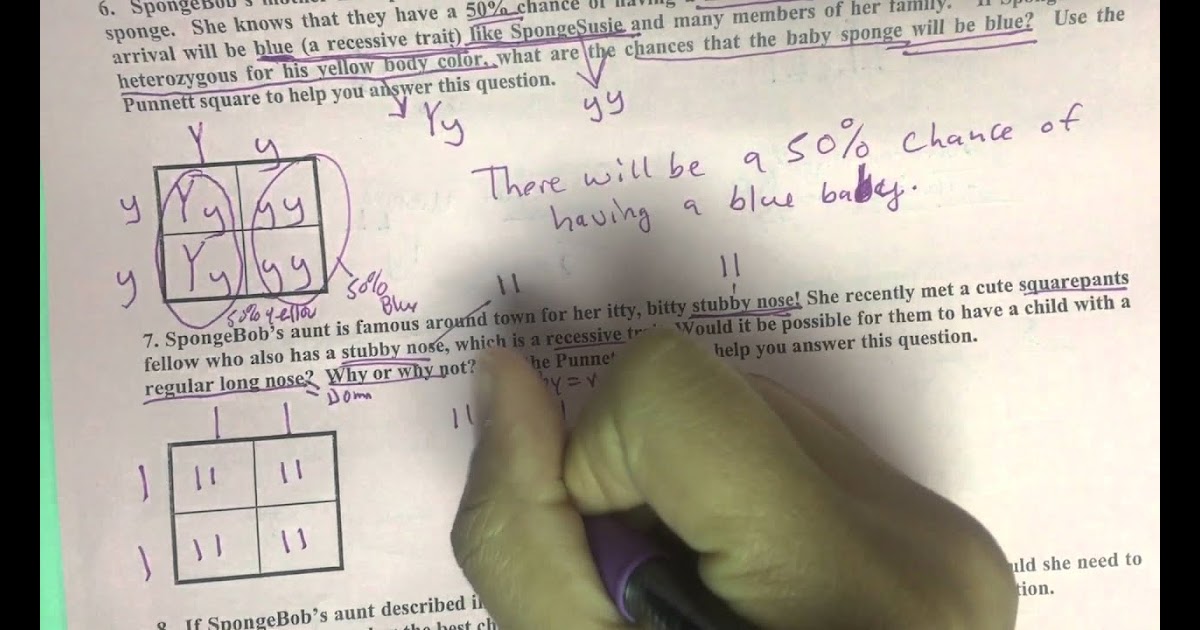 6. SpongeBob's mother
sponge. She knows that they have a 50% chance of having a
arrival will be blue (a recessive trait) like SpongeSusie and many members of her family. If
heterozygous for his yellow body color, what are the chances that the baby sponge will be blue? Use the
Punnett square to help you answer this question.
Yy
yy
Y y
y Yy yy
y Yy yy
50% yellow
50%
Blue
There will be a 50% chance of
having a blue baby.
ll
ll
7. SpongeBob's aunt is famous around town for her itty, bitty stubby nose! She recently met a cute squarepants
fellow who also has a stubby nose, which is a recessive Would it be possible for them to have a child with a
regular long nose? Why or why not? the help you answer this question.
l l
l ll ll
l ll ll
ll
she need to
8. If SpongeBob's aunt described